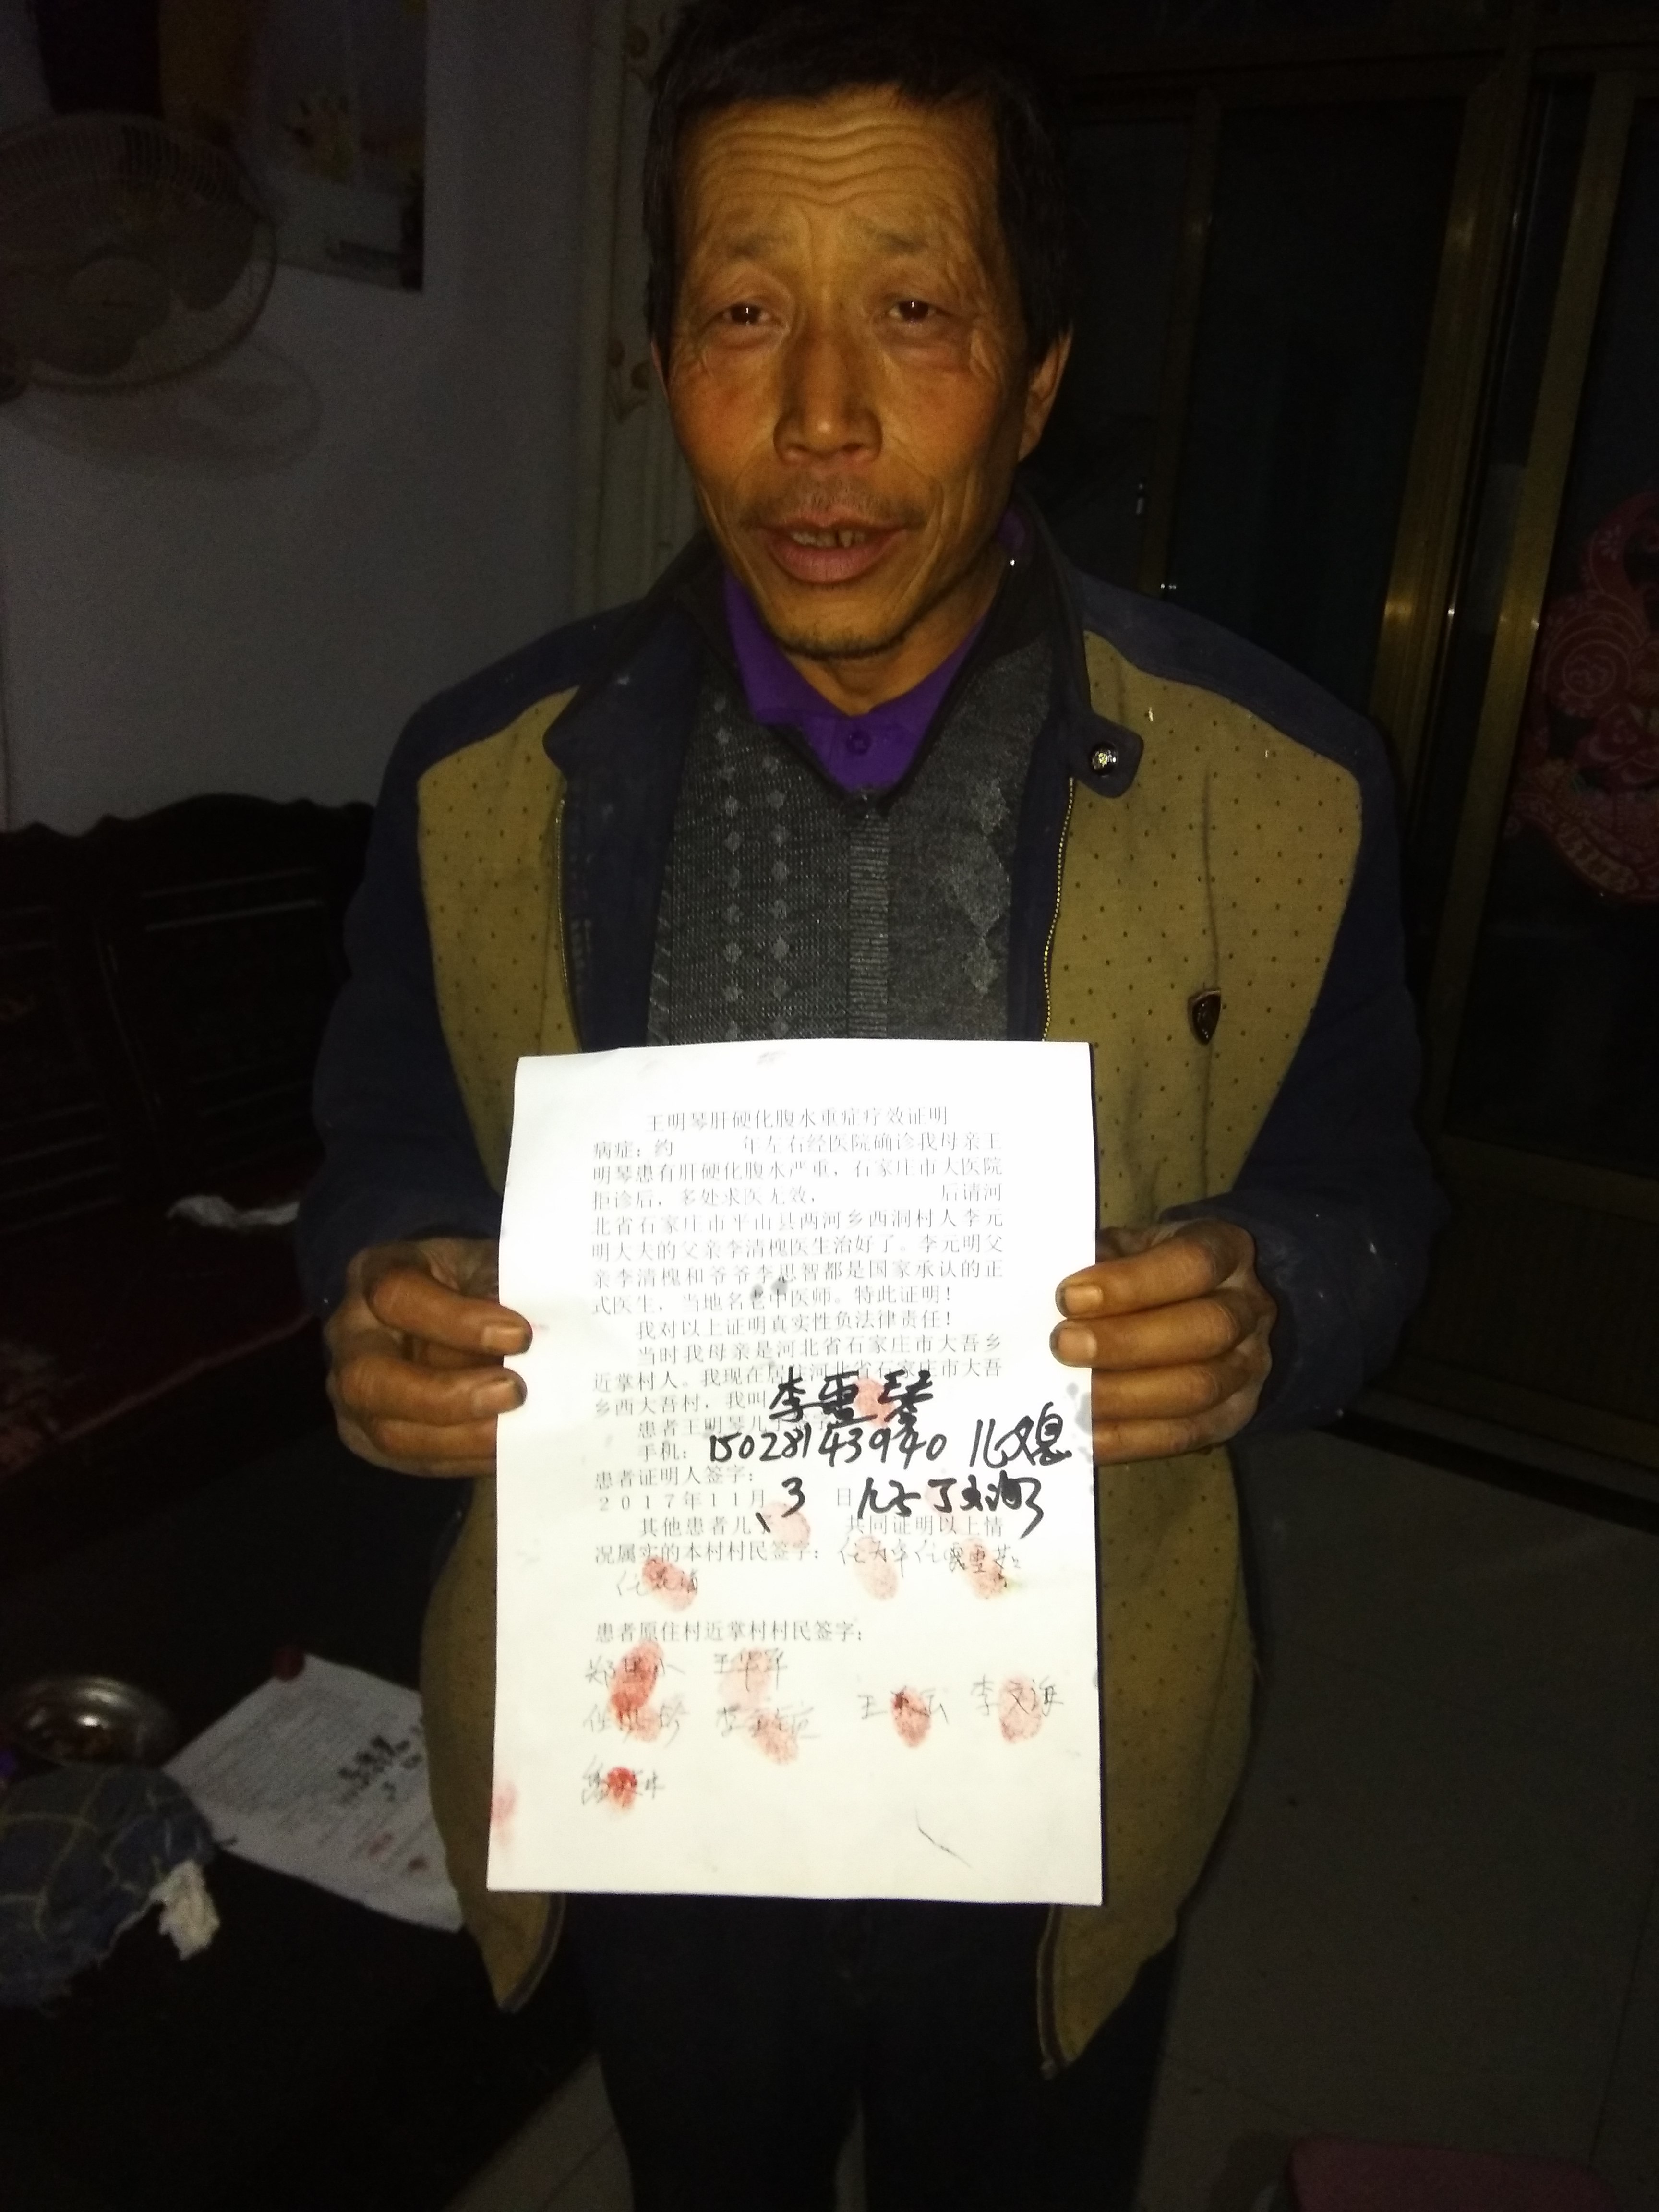 王明琴肝硬化腹水重症疗效证明
病症：约 年左右经医院确诊我母亲王
明琴患有肝硬化腹水严重，石家庄市大医院
拒诊后，多处求医无效， 后请河
北省石家庄市平山县两河乡西洞村人李元
明大夫的父亲李清槐医生治好了。李元明父
亲李清槐和爷爷李思智都是国家承认的正
式医生，当地名老中医师。特此证明！
我对以上证明真实性负法律责任！
当时我母亲是河北省石家庄市大吾乡
近掌村人。我现在居住河北省石家庄市大吾
乡西大吾村，我叫
患者王明琴儿
手机：15028143940 儿媳
患者证明人签字：
2017年11月 3 日
其他患者儿子 共同证明以上情
况属实的本村村民签字：
患者原住村近掌村村民签字：
王华平
李文海